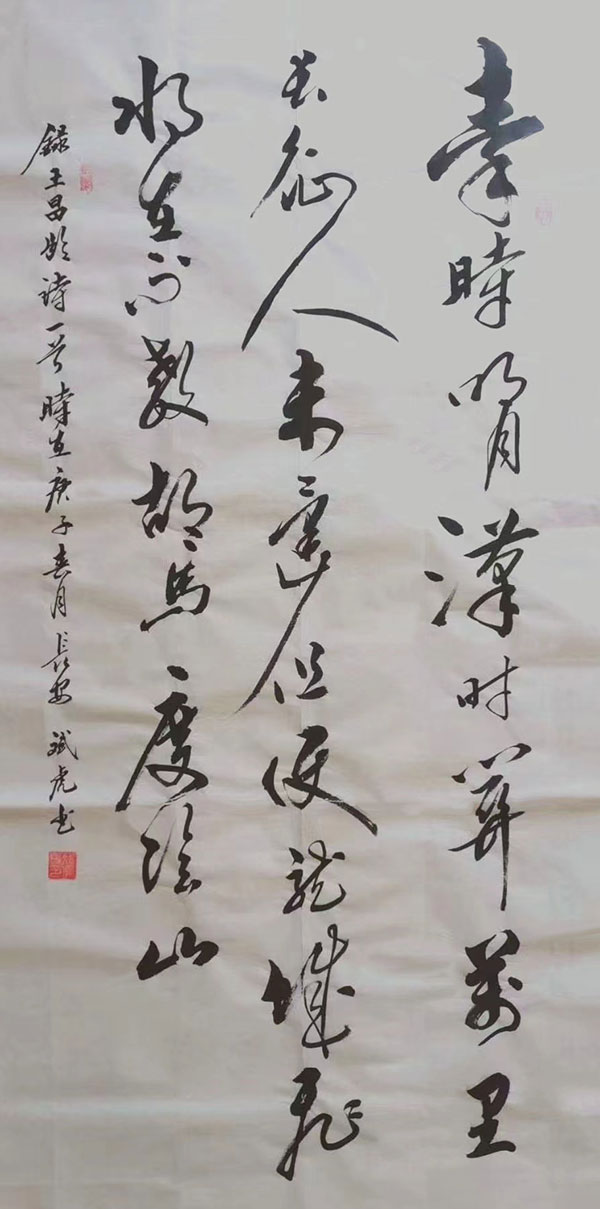 秦時明月漢时關萬里
長征人未還但使龍城飛
將在不教胡馬度陰山
録王昌齡詩一首時在庚子春月長安斌虎书